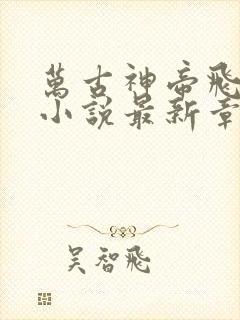 萬古神帝飛
小說最新章
吳智飛